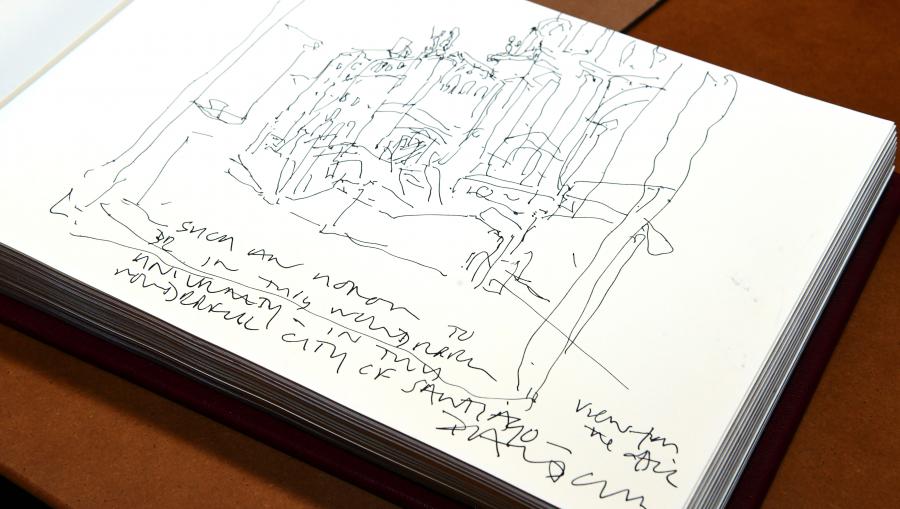 SUCH AN HONOR TO
BE IN THIS WONDERFUL
UNIVERSITY - IN THIS
WONDERFUL CITY OF SANTIAGO -
VIEW FROM
THE AIR